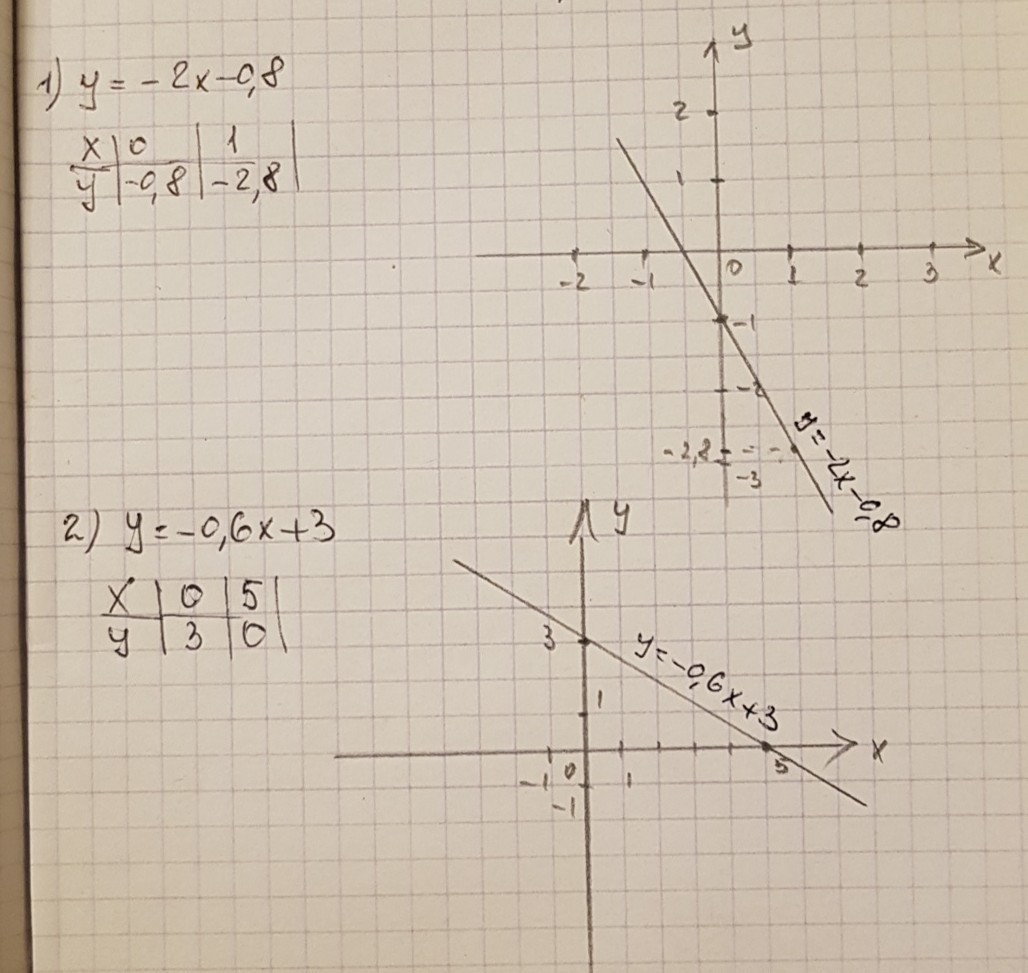 1) y = -2x-0,8
x | 0 | 1 |
y | -0,8 | -2,8 |
y
2
1
-2 -1 0 1 2 3 x
-1
-2
-2,8
-3
y=-2x-0,8
2) y=-0,6x+3
x | 0 | 5 |
y | 3 | 0 |
y
3
y=-0,6x+3
1
x
-1 0 1 5
-1